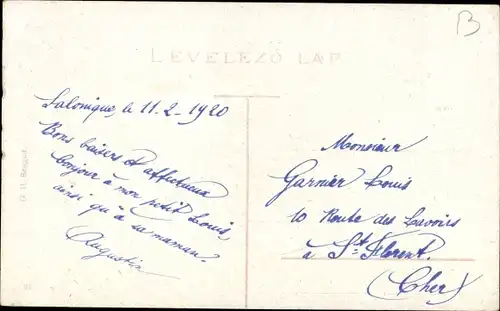 B
LEVELEZŐ LAP
Salonique, le 11.2-1920
Bons baisers et affectueux
bonjour à mon petit Louis,
ainsi qu'à sa maman.
Augustin
Monsieur
Garnier Louis
10 Route des Lavoirs
à St. Florent.
(Cher)